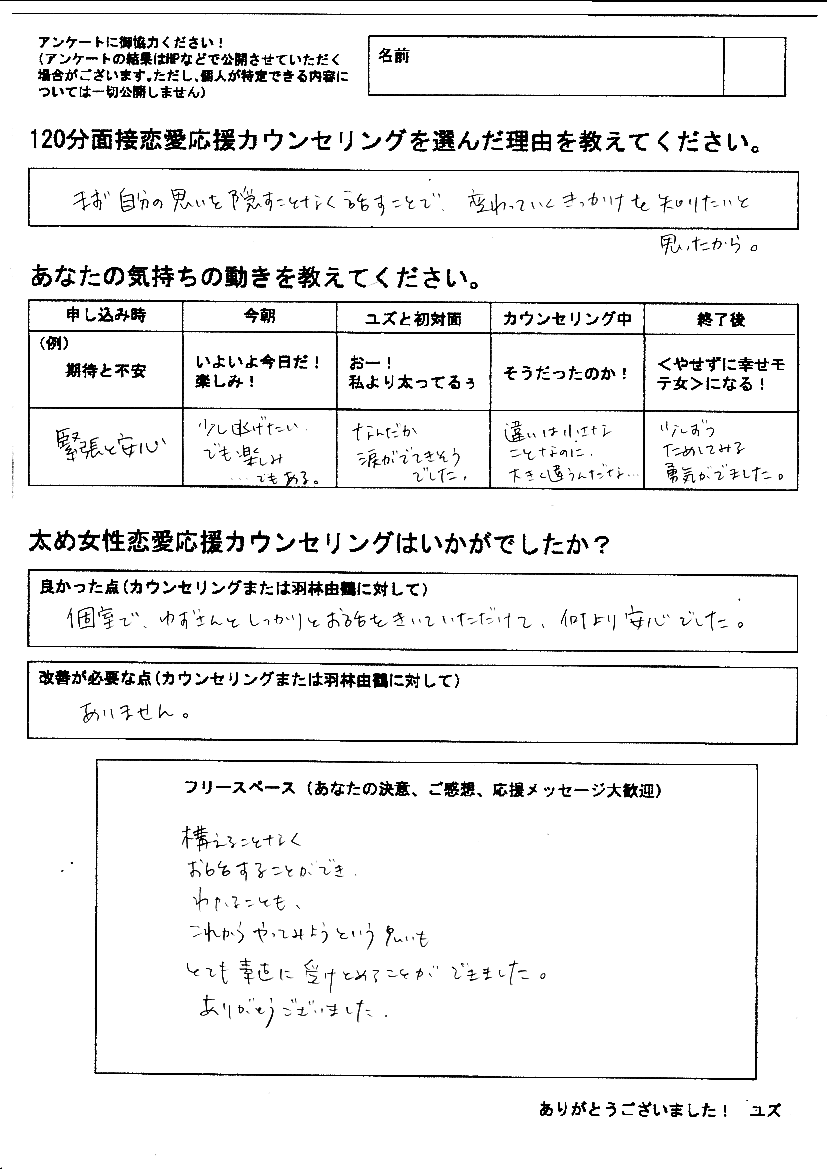 アンケートに御協力ください！
（アンケートの結果はHPなどで公開させていただく
場合がございます。ただし、個人が特定できる内容に
ついては一切公開しません）
名前
120分面接恋愛応援カウンセリングを選んだ理由を教えてください。
まず自分の思いを隠すことなく話すことで、変わっていくきっかけを知りたいと
思ったから。
あなたの気持ちの動きを教えてください。
申し込み時 今朝 ユズと初対面 カウンセリング中 終了後
（例）
期待と不安 いよいよ今日だ！ 楽しみ！ おー！ 私より太ってるぅ そうだったのか！ ＜やせずに幸せモテ女＞になる！
緊張と安心 少し逃げたい でも楽しみ …でもある。 なんだか 涙がでてきそう でした。 違いは小さな ことなのに、 大きく違うんだな… 少しずつ ためしてみる 勇気がでました。
太め女性恋愛応援カウンセリングはいかがでしたか？
良かった点（カウンセリングまたは羽林由鶴に対して）
個室で、ゆずさんとしっかりとお話をきいていただけて、何より安心でした。
改善が必要な点（カウンセリングまたは羽林由鶴に対して）
ありません。
フリースペース（あなたの決意、ご感想、応援メッセージ大歓迎）
構えることなく
お話することができ、
わかることも、
これからやってみようという思いも
とても素直に受けとめることができました。
ありがとうございました。
ありがとうございました！ ユズ